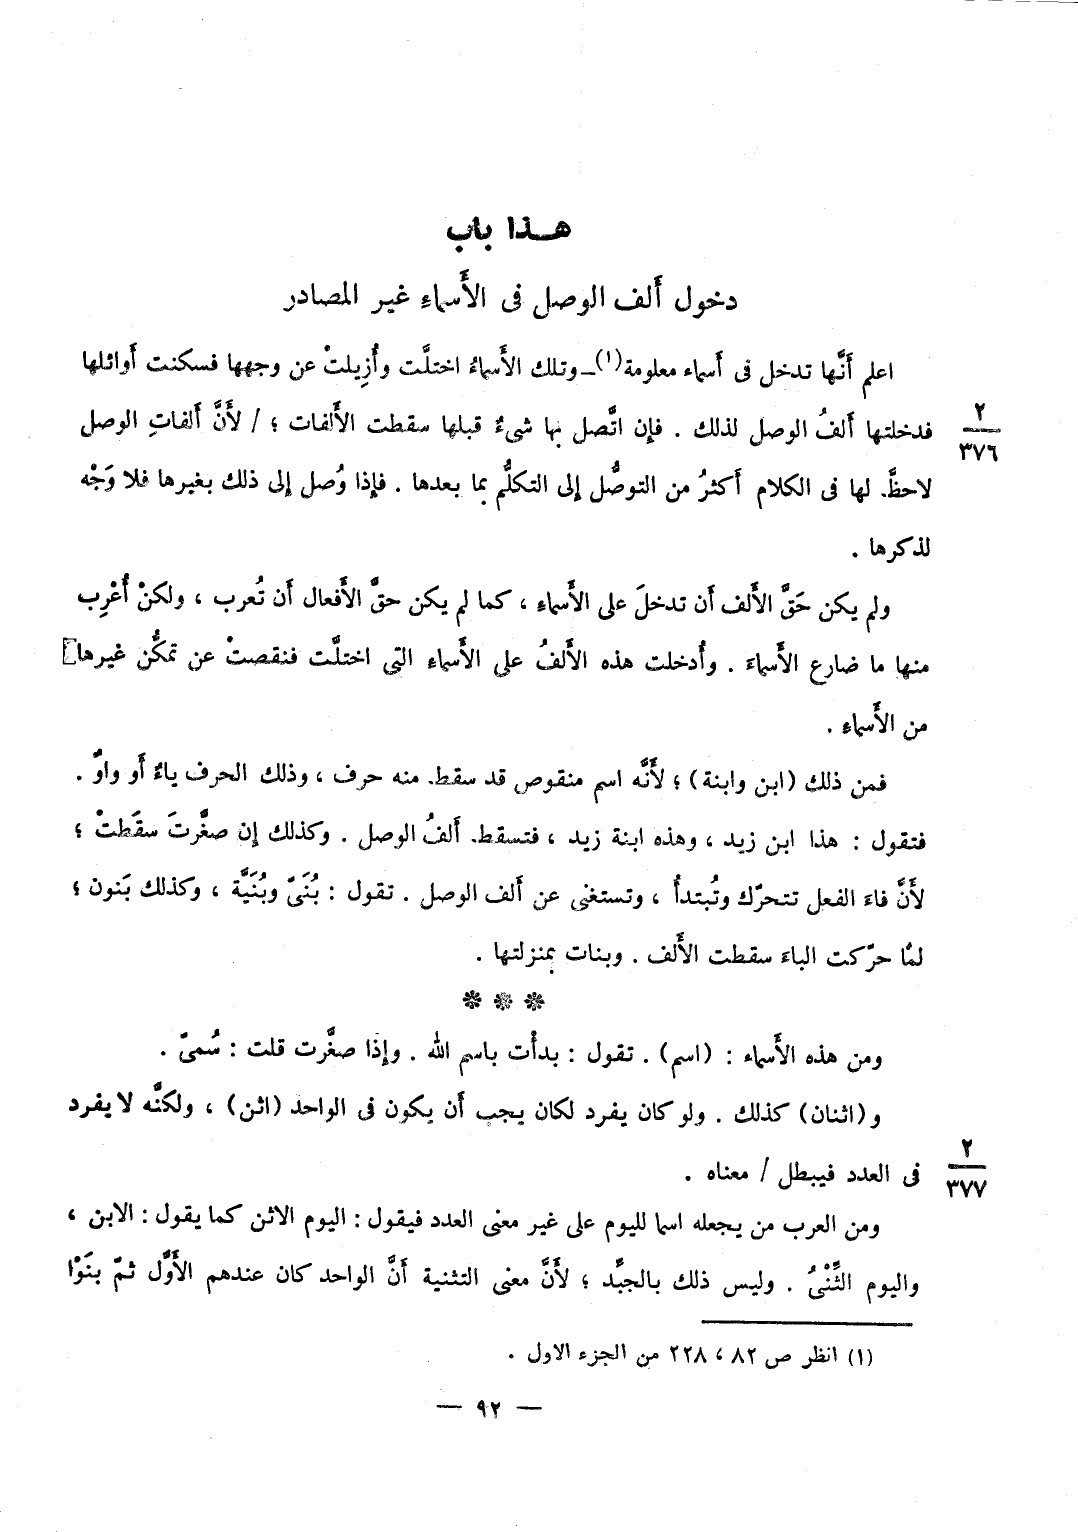 هــذا باب
دخول أَلف الوصل فى الأَسماءِ غير المصادر
اعلم أَنَّها تدخل فى أَسماء معلومة(١)ـ وتلك الأَسماءُ اختلَّت وأُزِيلتْ عن وجهها فسكنت أَوائلها
٢
٣٧٦
فدخلتها أَلفُ الوصل لذلك . فإن اتَّصل بها شىءٌ قبلها سقطت الأَلفات ؛ / لأَنَّ أَلفاتِ الوصل
لاحظَّ. لها فى الكلام أَكثرُ من التوصُّل إلى التكلُّم بما بعدها . فإذا وُصل إلى ذلك بغيرها فلا وَجْه
لذكرها .
ولم يكن حَقَّ الأَلف أَن تدخلَ على الأَسماءِ ، كما لم يكن حقَّ الأَفعال أَن تُعرب ، ولكنْ أُعْرِب
منها ما ضارع الأَسماءَ . وأُدخلت هذه الأَلفُ على الأَسماء التى اختلَّت فنقصتْ عن تمكُّن غيرها
من الأَسماءِ .
فمن ذلك (ابن وابنة) ؛ لأَنَّه اسم منقوص قد سقط. منه حرف ، وذلك الحرف ياءٌ أَو واوٌ .
فتقول : هذا ابن زيد ، وهذه ابنة زيد ، فتسقط. أَلفُ الوصل . وكذلك إن صغَّرتَ سقَطتْ ؛
لأَنَّ فاءَ الفعل تتحرّك وتُبتدأُ ، وتستغنى عن أَلف الوصل . تقول : بُنَىّ وبُنَيَّة ، وكذلك بَنون ؛
لمّا حرّكت الباءَ سقطت الأَلف . وبنات بمنزلتها .
❊ ❊ ❊
ومن هذه الأَسماء : (اسم) . تقول : بدأْت باسم الله . وإذا صغَّرت قلت : سُمىّ .
و(اثنان) كذلك . ولو كان يفرد لكان يجب أَن يكون فى الواحد (اثن) ، ولكنَّه لا يفرد
٢
٣٧٧
فى العدد فيبطل / معناه .
ومن العرب من يجعله اسما لليوم على غير معنى العدد فيقول : اليوم الاثن كما يقول : الابن ،
واليوم الثِّنْىُ . وليس ذلك بالجيِّد ؛ لأَنَّ معنى التثنية أَنَّ الواحد كان عندهم الأَوَّل ثمّ بنَوْا
(١) انظر ص ٨٢ ، ٢٢٨ من الجزء الاول .
— ٩٢ —